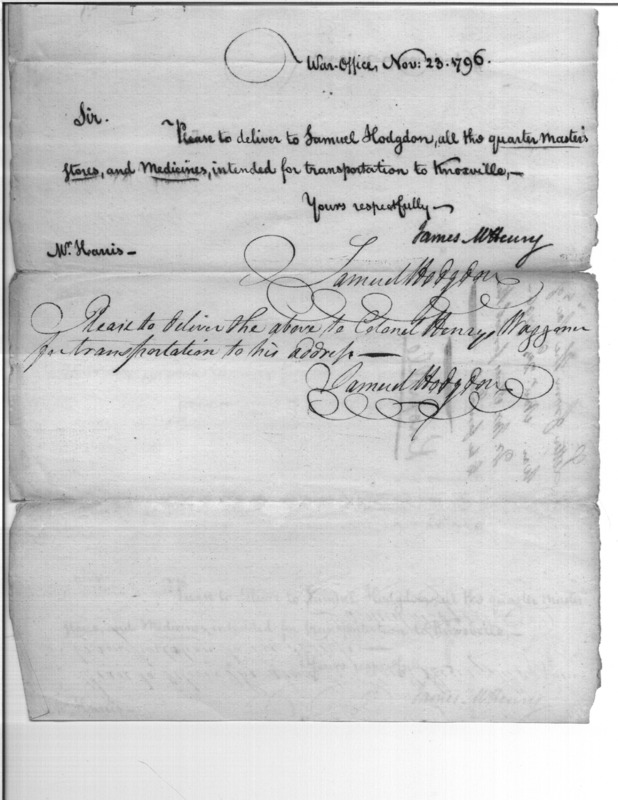 War-Office, Nov: 23. 1796.
Sir.
Please to deliver to Samuel Hodgdon, all the quarter master's
stores, and Medicines, intended for transportation to Knoxville,—
Yours respectfully—
James McHenry
Mr. Harris—
Samuel Hodgdon
Please to deliver the above to Colonel Henrys Waggoner
for transportation to his address—
Samuel Hodgdon